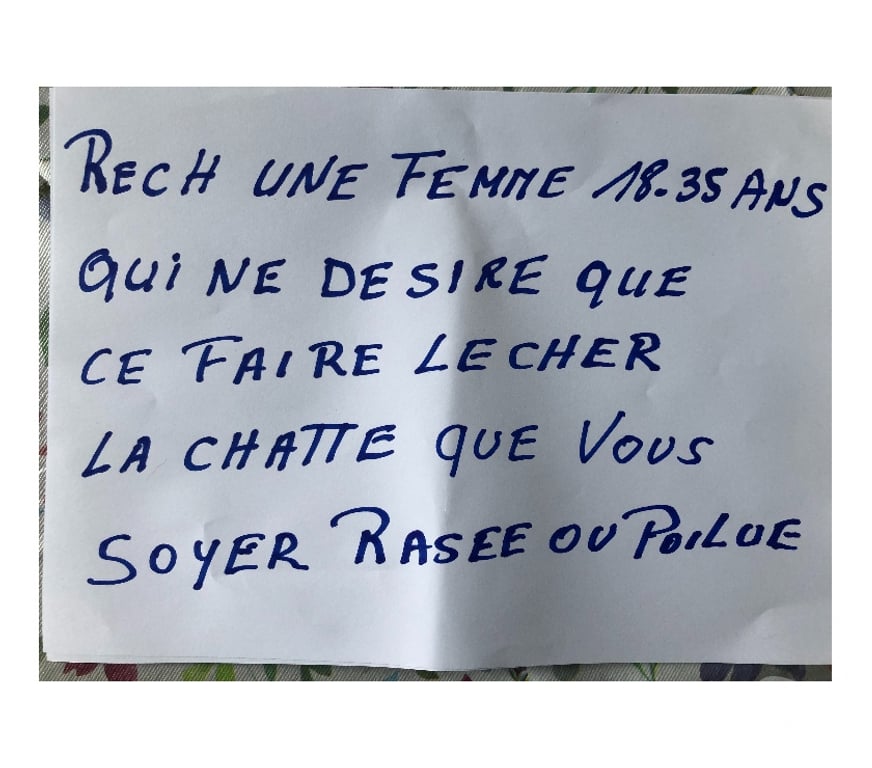 RECH UNE FEMME 18.35 ANS
QUI NE DESIRE QUE
CE FAIRE LECHER
LA CHATTE QUE VOUS
SOYER RASEE OU POILUE